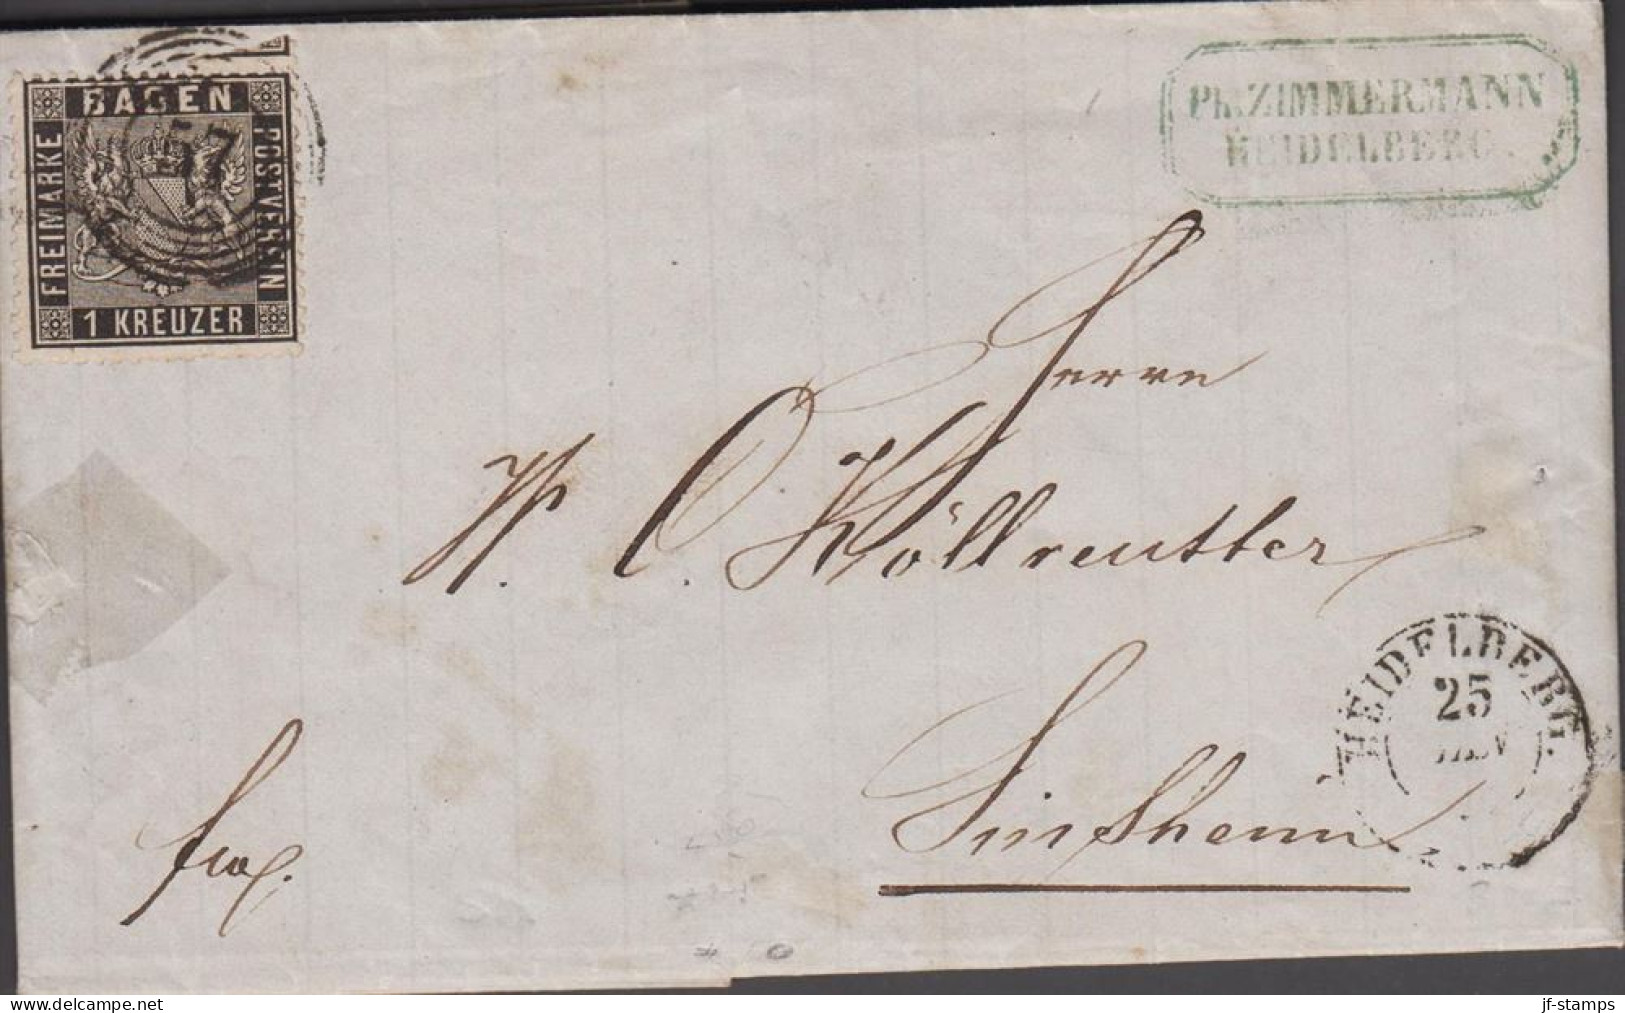 BADEN
FREIMARKE
POSTVEREIN
1 KREUZER
57
Ph. ZIMMERMANN
HEIDELBERG.
Herrn
C. Höllreutter
Sinsheim
frco.
HEIDELBERG.
25
www.delcampe.net
jf-stamps